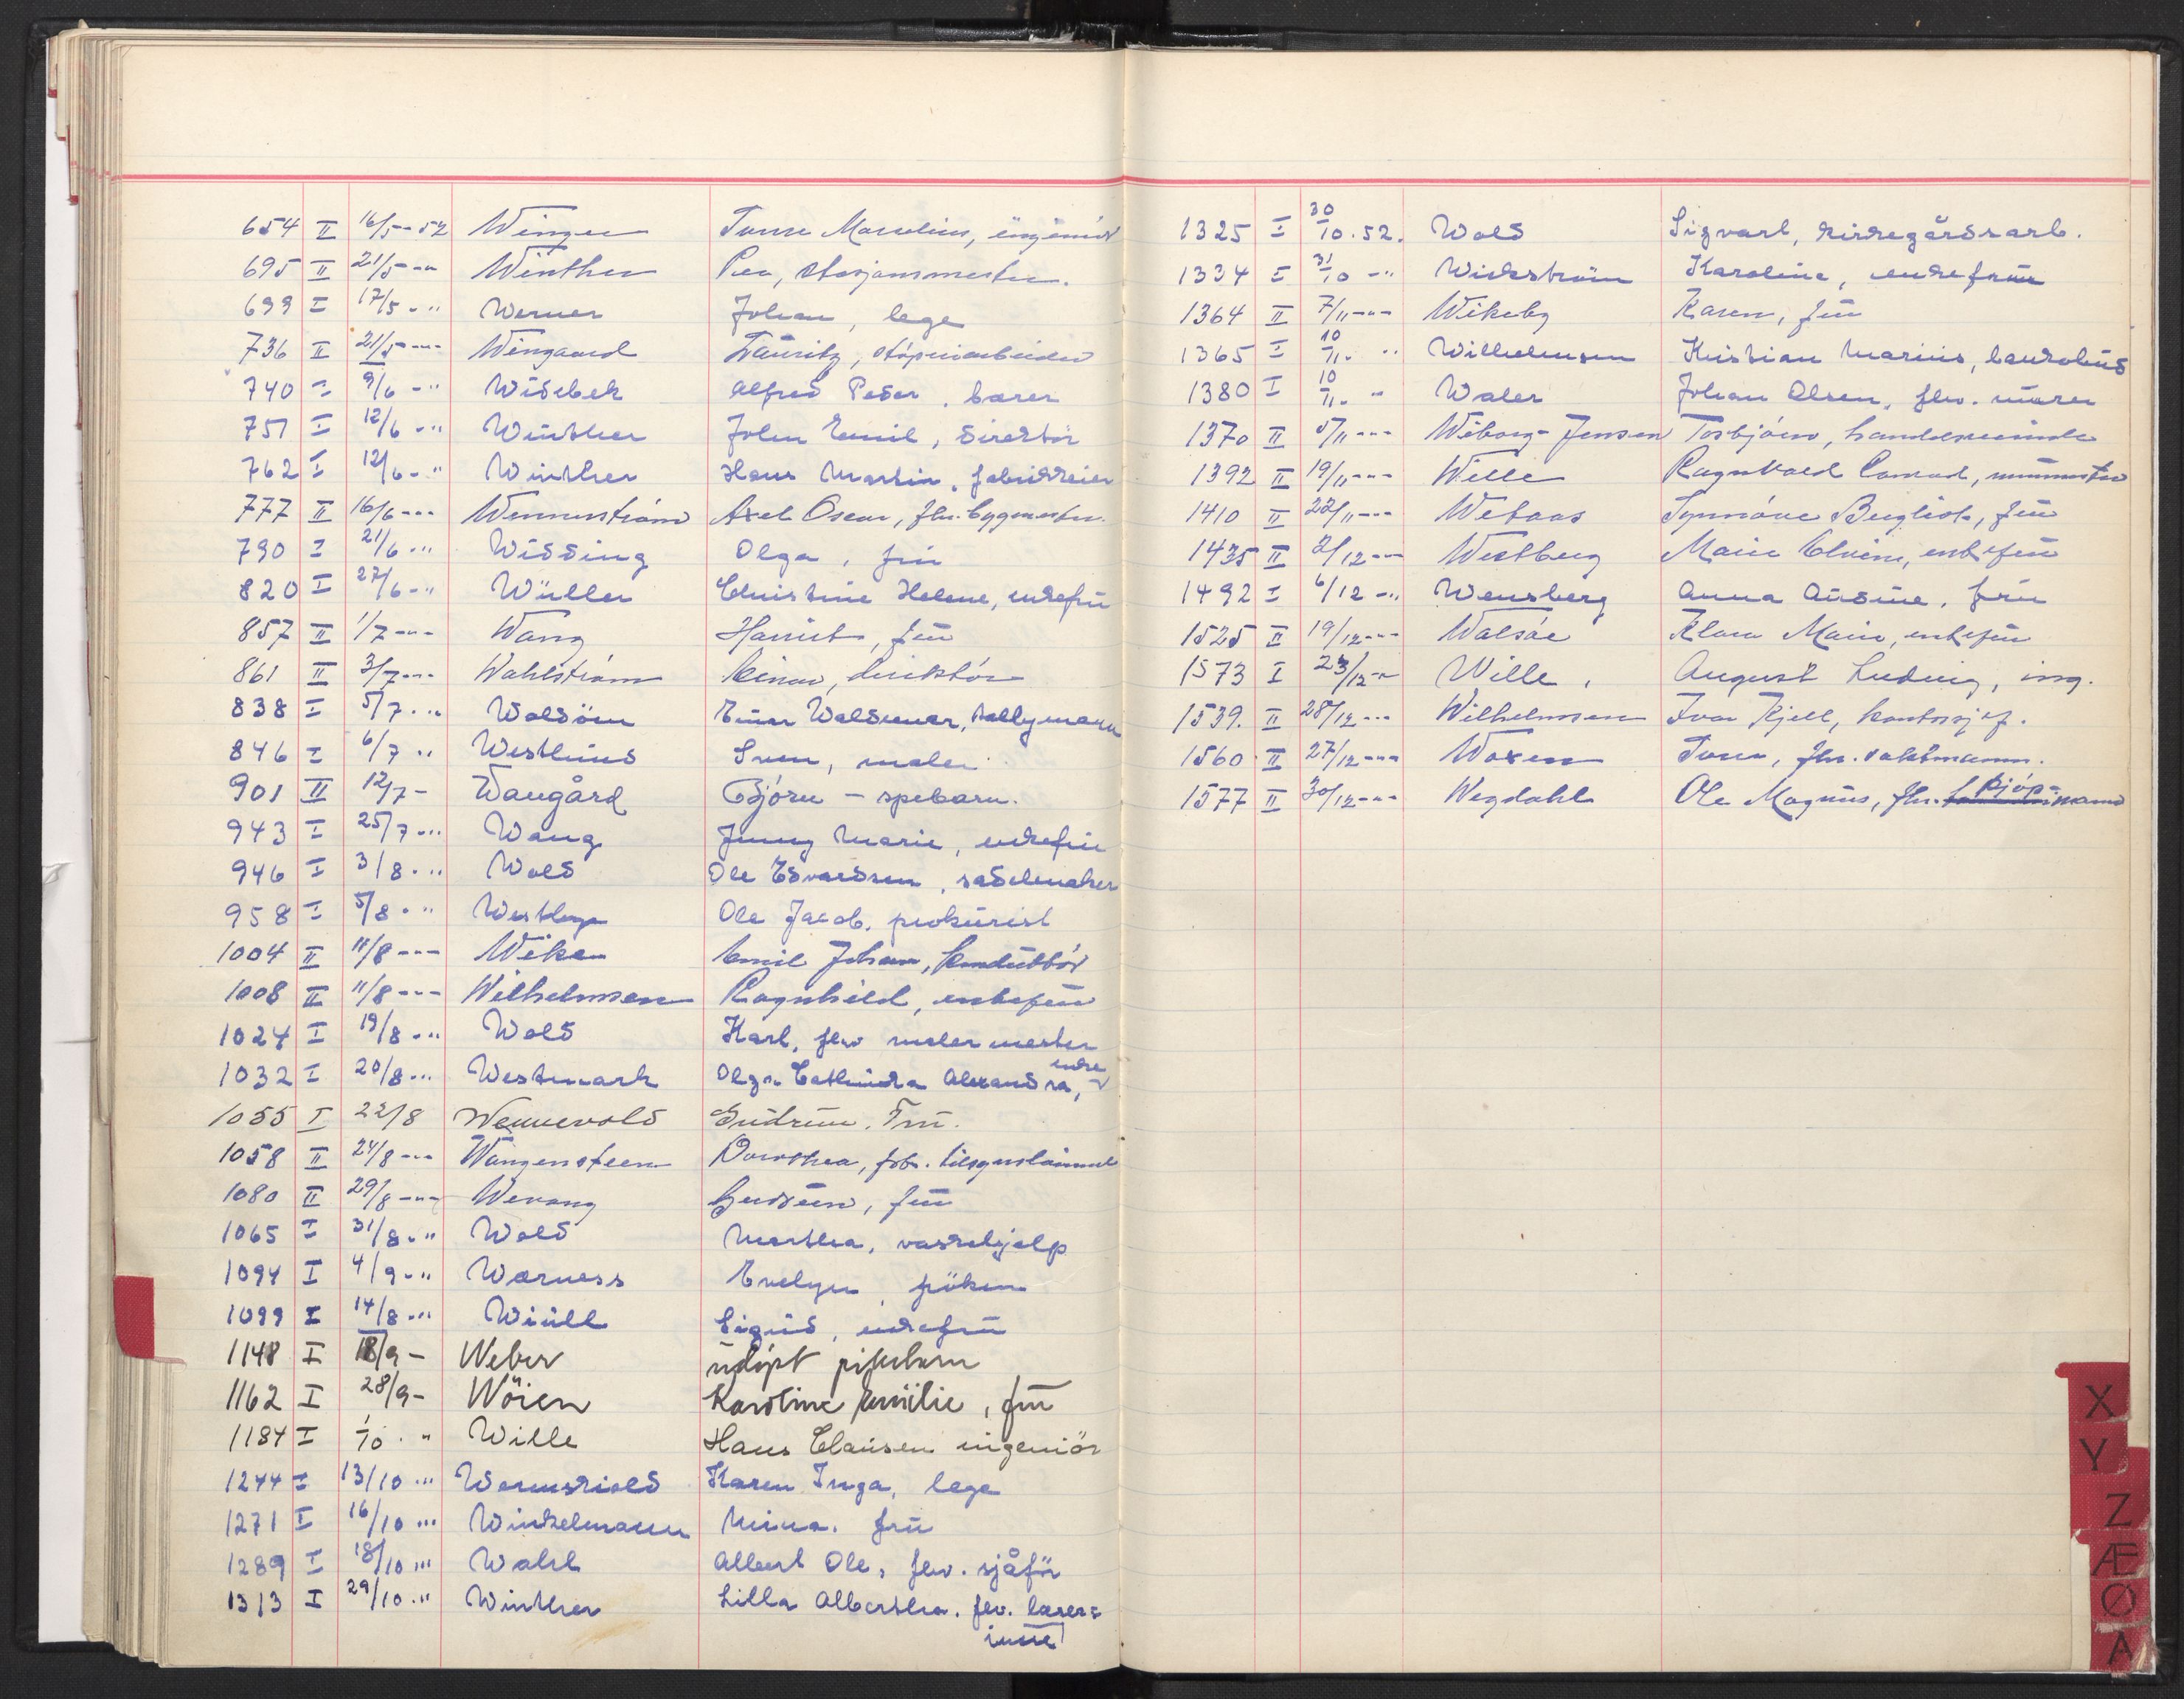 654 II 16/5-52 Winger Tunre Marelius, ingeniör
695 II 21/5 -"- Winther Per, stasjonsmester.
699 I 17/5 - " Werner Johan, lege
736 II 21/5 -"- Wingaard Lauritz, støperiarbeider
740 I 9/6 - " Widebek Alfred Peder, bærer
751 I 12/6 - " Winther John Emil, direktör
762 I 12/6 - " Winther Hans Martin, fabrikkeier
777 II 16/6 -"- Wennerstrøm Axel Oscar, fhv. byggmester.
790 I 21/6 - " Widding Olga, fru
820 I 27/6 - " Wüller Christine Helene, enkefru
857 II 1/7 -"- Wang Harriet, fru
861 II 3/7 -"- Wahlstrøm Einar, direktør
838 I 5/7 - " Waldöm Einar Waldemar, tallymann
846 I 6/7 " Westlund Sven, maler
901 II 12/7 - Wangård Bjørn - spebarn.
943 I 25/7 - " Wang Jenny Marie, enkefru
946 I 3/8 - " Wold Ole Edvardsen, sadelmaker
958 I 5/8 - " Westbye Ole Jacob, prokurist
1004 II 11/8 -"- Wiken Emil Johan, konduktør
1008 II 11/8 -"- Wilhelmsen Ragnhild, enkefru
1024 I 19/8 - " Wold Karl, flv malermester
1032 I 20/8 - " Westmark Olga Cathinka Alexandra, enke
1055 I 22/8 Wennevold Gudrun, Fru.
1058 II 24/8 -"- Wangensteen Dorothea, fhv.
1080 II 29/8 -"- Wevang Gudrun, fru
1065 I 31/8 - " Wold Martha, vaskehjelp
1094 I 4/9 - " Wærness Evelyn, fröken
1099 I 14/8 - " Wiull Sigrid, enkefru
1148 I 18/9 - Weber udøpt pikebarn
1162 I 28/9 - Wöien Karoline Emilie, fru
1184 I 1/10 - " Wille Hans Clausen ingeniör
1244 I 13/10 - " Wormskiold Karen Inga, lege
1271 I 16/10 - " Winkelmann Mina, fru
1289 I 18/10 - " Wahl Albert Ole, flv. sjåför
1313 I 29/10 - " Winther Lilla Albertha, flv. lærer=
inne
1325 I 30/10.52. Wold Sigvart, kirkegårdsarb.
1334 I 31/10 - " Wickström Karoline, enkefrue
1364 II 7/11 -"- Wikeby Karen, fru
1365 I 10/11. " Wilhelmsen Kristian Marius,
1380 I 10/11. " Waler Johan Olsen, flv. murer
1370 II 5/11 -"- Wiborg-Jensen Torbjørn, handelsreisende
1392 II 19/11 -"- Wille Ragnvald Conrad,
1410 II 22/11 -"- Wetaas Synnøve Bergliot, fru
1435 II 2/12 -"- Westberg Marie Elvine, enkefru
1492 I 6/12 - " Wensberg Anna Ausine, fru
1525 II 19/12 -"- Walsøe Klara Marie, enkefru
1573 I 23/12 - " Wille, August Ludvig, ing.
1539. II 28/12 -"- Wilhelmsen Ivar Kjell, kontorsjef.
1560 II 27/12 -"- Woxen Tora, fhv. vaktmann.
1577 II 30/12 -"- Wegdahl Ole Magnus, fhv. kjøpmann
X
Y
Z
Æ
Ø
A